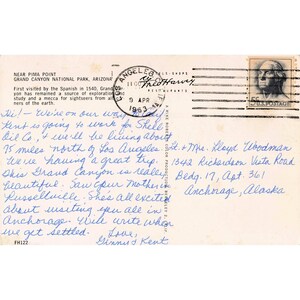 NEAR PIMA POINT
GRAND CANYON NATIONAL PARK, ARIZONA
First visited by the Spanish in 1540, Grand
yon has remained a source of exploration
study and a mecca for sightseers from all
ners of the earth.
Hi! - We're on our way.
Kent is going to work for Shell
Oil Co. & we'll be living about
75 miles north of Los Angeles.
We're having a great trip.
This Grand Canyon is really
beautiful. Saw your Mother in
Russellville. She's all excited
about visiting you all in
Anchorage. Will write when
we get settled.
Love,
Ginny & Kent
FH122
LOS ANGELES
9 APR
1963
Fred Harvey
Lt. & Mrs. Lloyd Woodman
1342 Richardson Vista Road
Bldg. 17, Apt. 361
Anchorage, Alaska
U.S. POSTAGE